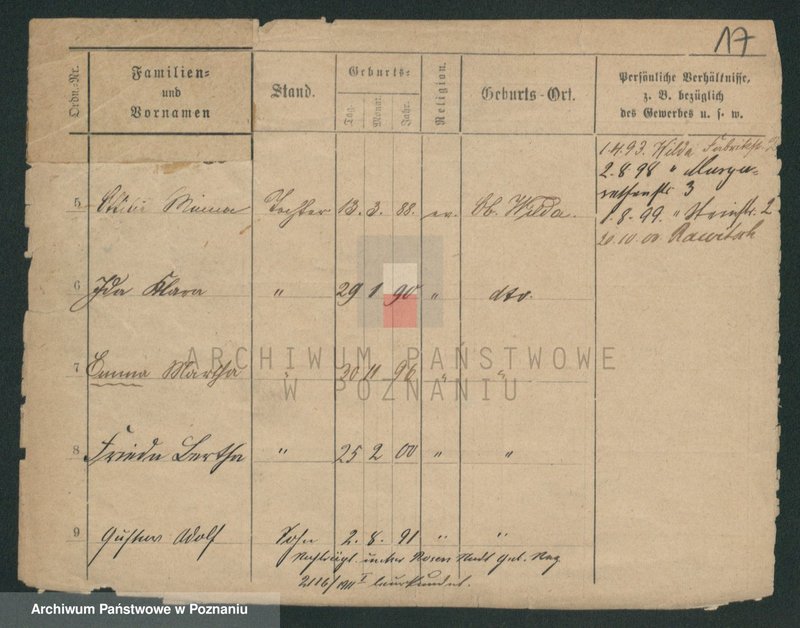 17
Ordn.-Nr.
Familien-
und
Vornamen
Stand.
Geburts-
Tag.
Monat.
Jahr.
Religion.
Geburts-Ort.
Persönliche Verhältnisse,
z. B. bezüglich
des Gewerbes u. s. w.
1.4.93. Wilda Fabrikstr.
2.8.98 " Marga-
rethenstr 3
5 Minna Tochter 13. 3. 88. ev. Wilda.
1.8.99. " 2
20.10.00 Rawitsch
6 Ida Klara " 29 1 90 " dto.
7 Emma Martha " 30 11 96 " "
8 Frieda Bertha " 25 2 00 " "
9 Gustav Adolf Sohn 2. 8. 91 " "
unter Posen Stadt Geb. Reg
2116/ I beurkundet.
ARCHIWUM PAŃSTWOWE
W POZNANIU
Archiwum Państwowe w Poznaniu